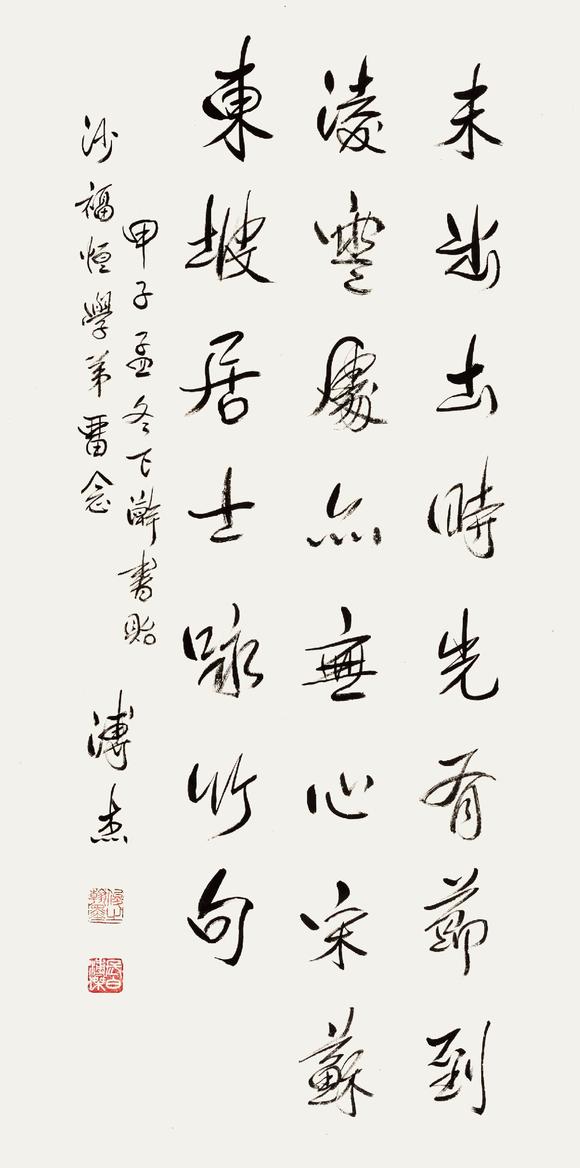 未出土時先有節到
淩雲處亦無心宋蘇
東坡居士咏竹句
甲子孟冬下澣書貽
沙福恒學弟畱念
溥杰